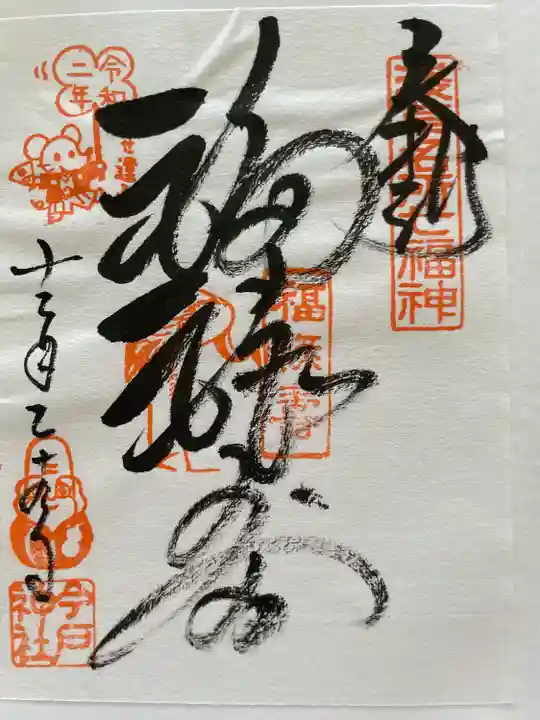 奉拝
浅草名所七福神
福禄寿
福禄寿
令和
二年
十二月二十九日
今戸
神社